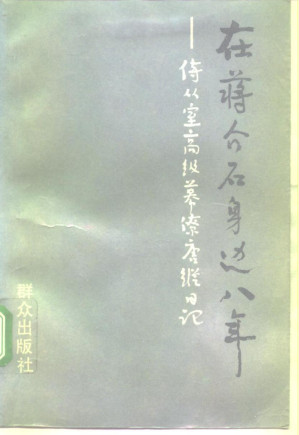 在蒋介石身边八年
——侍从室高级幕僚唐纵日记
群众出版社